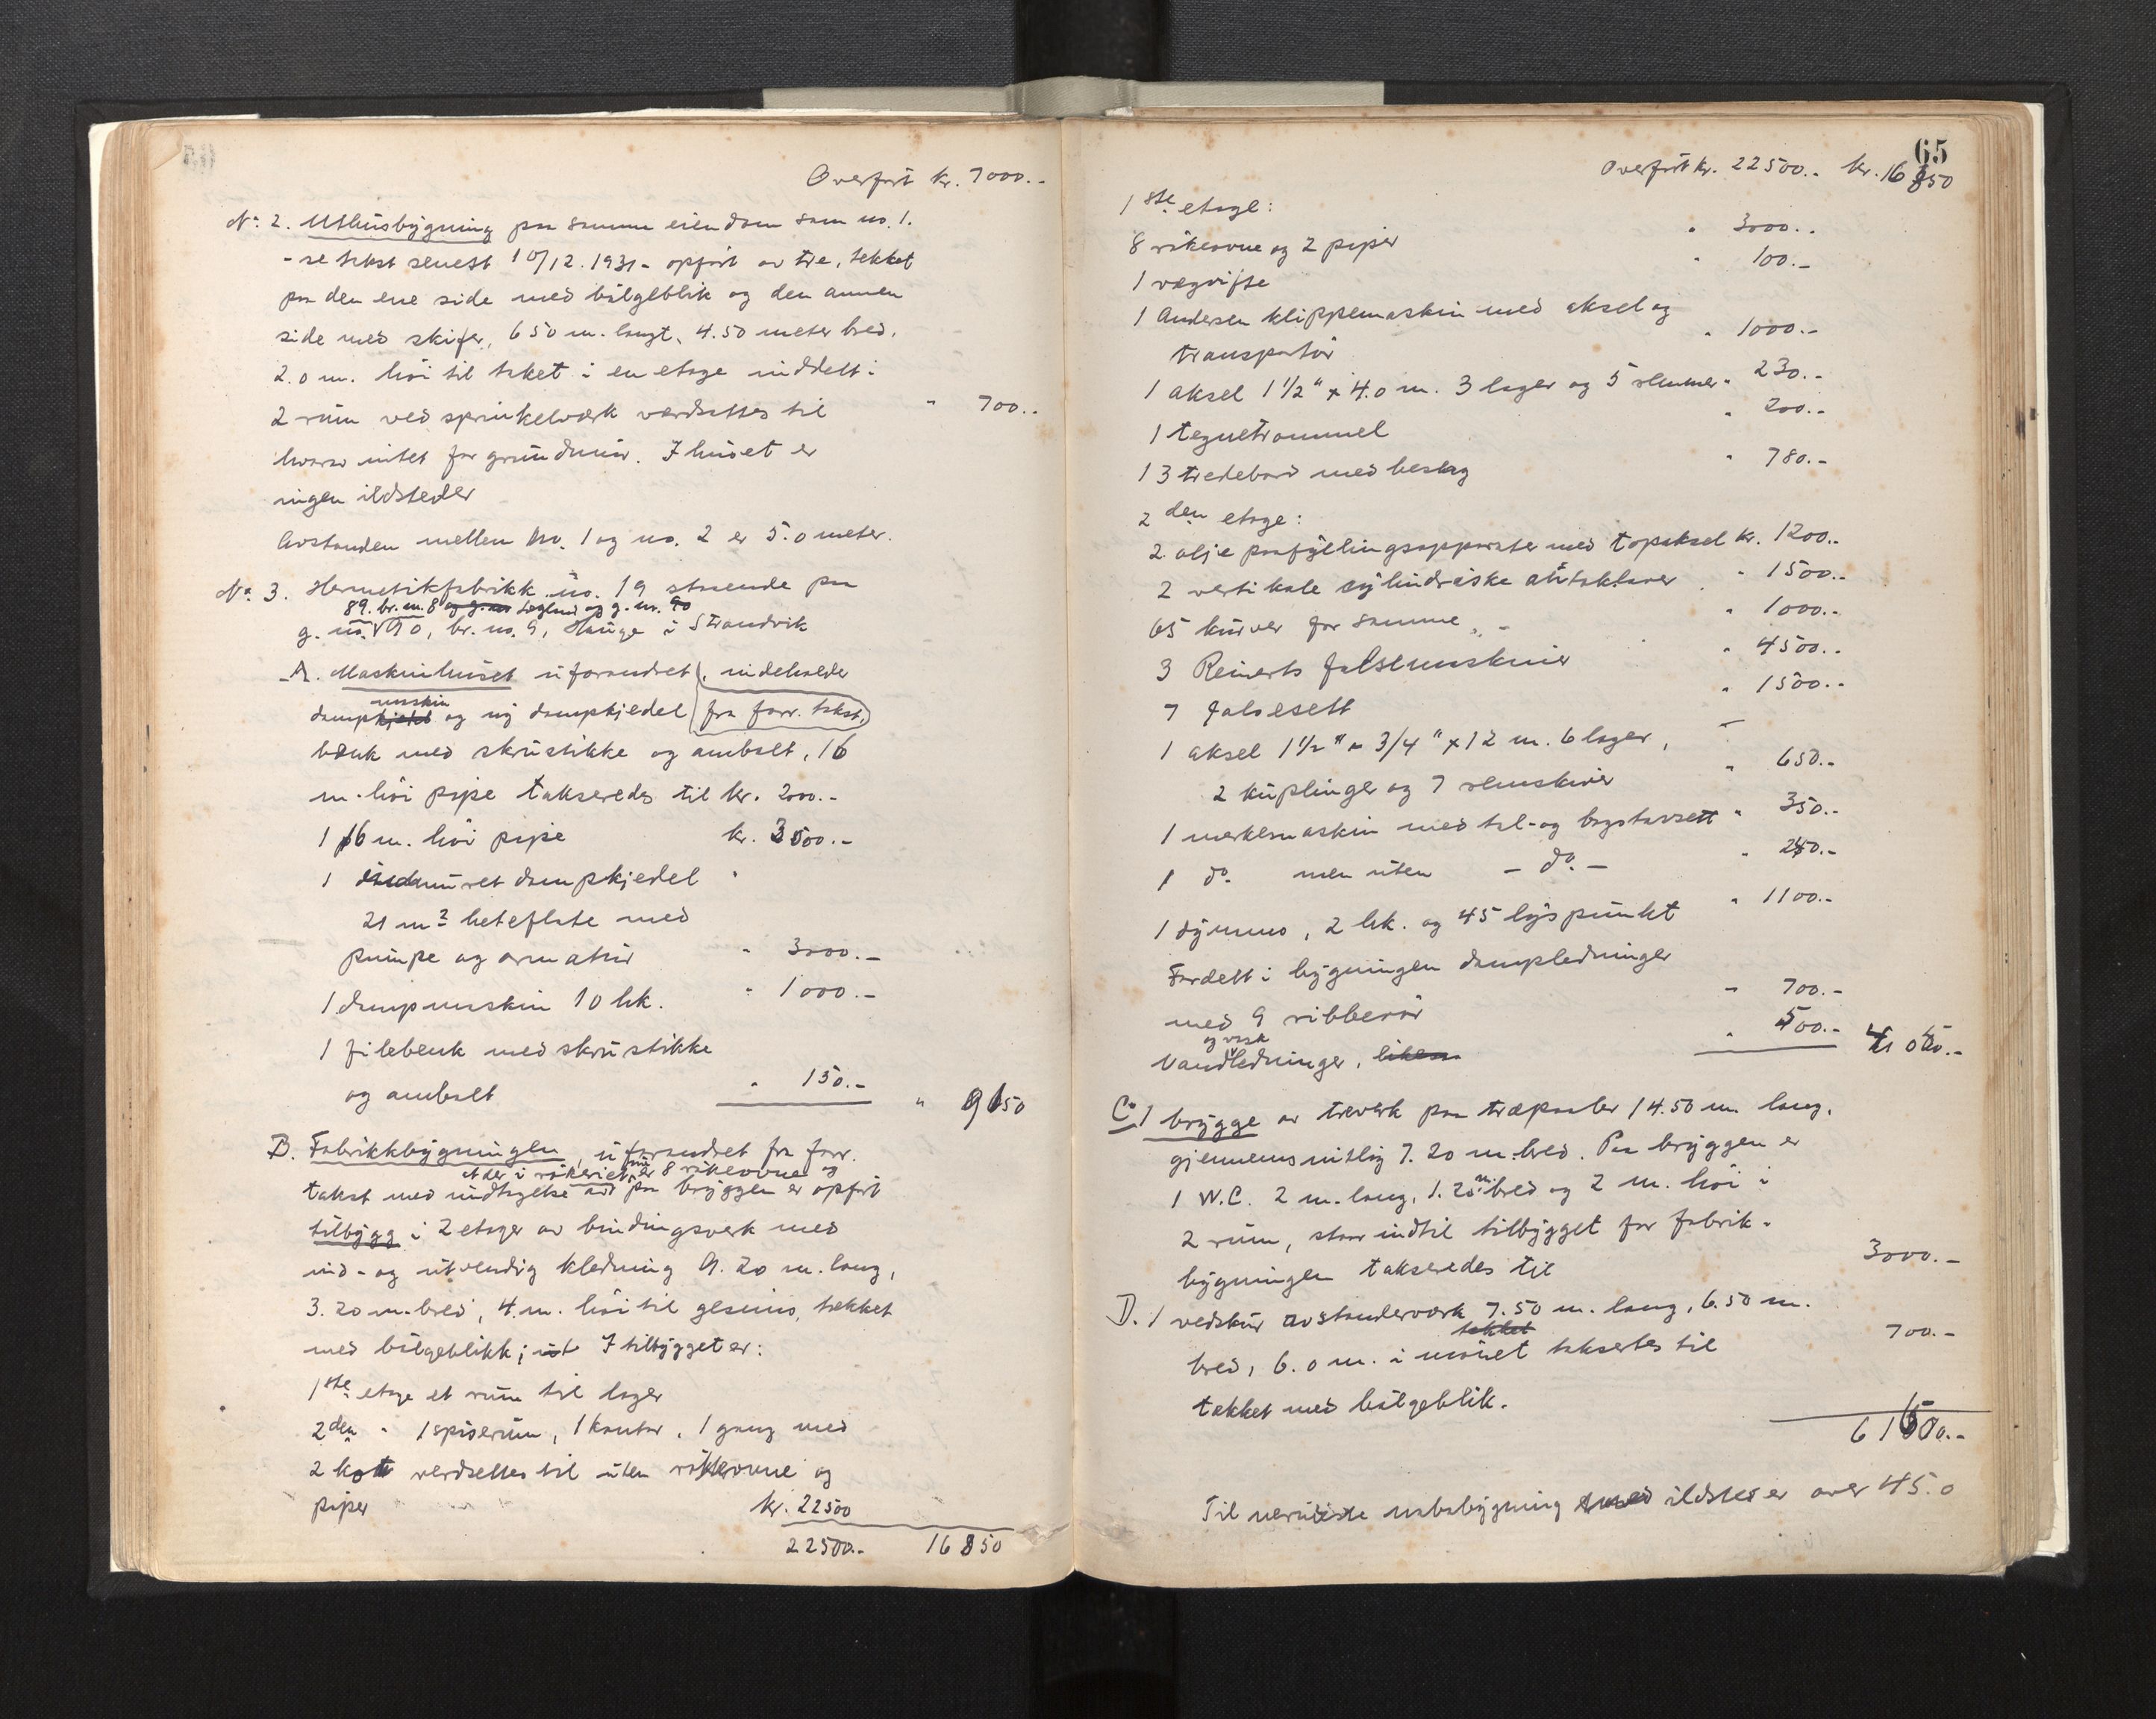 Overført kr. 7000.-
No. 2. Uthusbygning paa samme eiendom som no. 1.
- se takst senest 10/12.1931 - opført av tre, tekket
paa den ene side med bølgeblik og den annen
side med skifer, 6 50 m. langt, 4.50 meter bred,
2.0 m. høi til taket i en etage inddelt i
2 rum ved sprinkelverk værdsættes til " 700.-
hvorav intet for grundmur. I huset er
ingen ildsteder
Avstanden mellem No. 1 og no. 2 er 5.0 meter.
No. 3. Hermetikfabrikk no. 19 staaende paa
89. br. no. 8 og g. no Loglund og g. no. 90
g. no. 90, br. no. 9, Hauge i Strandvik
A. Maskinhuset uforandret, indeholder
maskin
dampkjedel og ny dampkjedel (fra forr. takst)
bænk med skrustikke og ambolt, 16
m. høi pipe takseredes til kr. 2000.-
1 16 m. høi pipe kr. 3500.-
1 indmuret dampkjedel "
21 m2 heteflate med
pumpe og armatur " 3000.-
1 dampmaskin 10 hk. " 1000.-
1 filebenk med skrustikke
og ambolt " 150.- " 9150
B. Fabrikkbygningen, uforandret fra forr.
at der i røkeriet nu er 8 røkeovne og
takst med undtagelse av paa bryggen er opført
tilbygg i 2 etager av bindingsverk med
ind- og utvendig kledning 9.20 m. lang,
3.20 m. bred, 4 m. høi til gesims, tekket
med bølgeblikk; ut I tilbygget er:
1ste etage et rum til lager
2den " 1 spiserum, 1 kontor, 1 gang med
2 kott verdsettes til uten røkeovne og
piper kr. 22500
22500.- 16850
65
Overført kr. 22500.- kr. 16850
1ste etage:
8 røkeovne og 2 piper " 3000.-
1 vægvifte " 100.-
1 Andersen klippemaskin med aksel og
transportør " 1000.-
1 aksel 1 1/2" x 4.0 m. 3 lager og 5 remmer " 230.-
1 tegnetrommel " 200.-
13 tredebord med beslag " 780.-
2den etage:
2 olje paafyllingsapparater med topaksel kr. 1200.-
2 vertikale sylindriske autoklaver " 1500.-
65 kurver for samme " 1000.-
3 Reinerts falsemaskiner " 4500.-
7 falsesett " 1500.-
1 aksel 1 1/2" x 3/4" x 12 m. 6 lager,
2 kuplinger og 7 remskiver " 650.-
1 merkemaskin med tal- og bogstavsett " 350.-
1 do. men uten - do. - " 250.-
1 dynamo, 2 hk. og 45 lyspunkt " 1100.-
Fordelt i bygningen dampledninger
med 9 ribberør " 700.-
og vask
Vandledninger, likesaa " 500.- 41 060.-
C. 1 brygge av treverk paa træpæler 14.50 m. lang,
gjennemsnitlig 7.20 m. bred. Paa bryggen er
1 W.C. 2 m. lang, 1.20 m. bred og 2 m. høi i
2 rum, staar indtil tilbygget for fabrik-
bygningen takseredes til 3000.-
D. 1 vedskur av stenderværk 7.50 m. lang, 6.50 m.
tekket
bred, 6.0 m. i mønet taksertes til 700.-
tækket med bølgeblik.
61650.-
Til nermeste nabobygning med ildsted er over 45.0